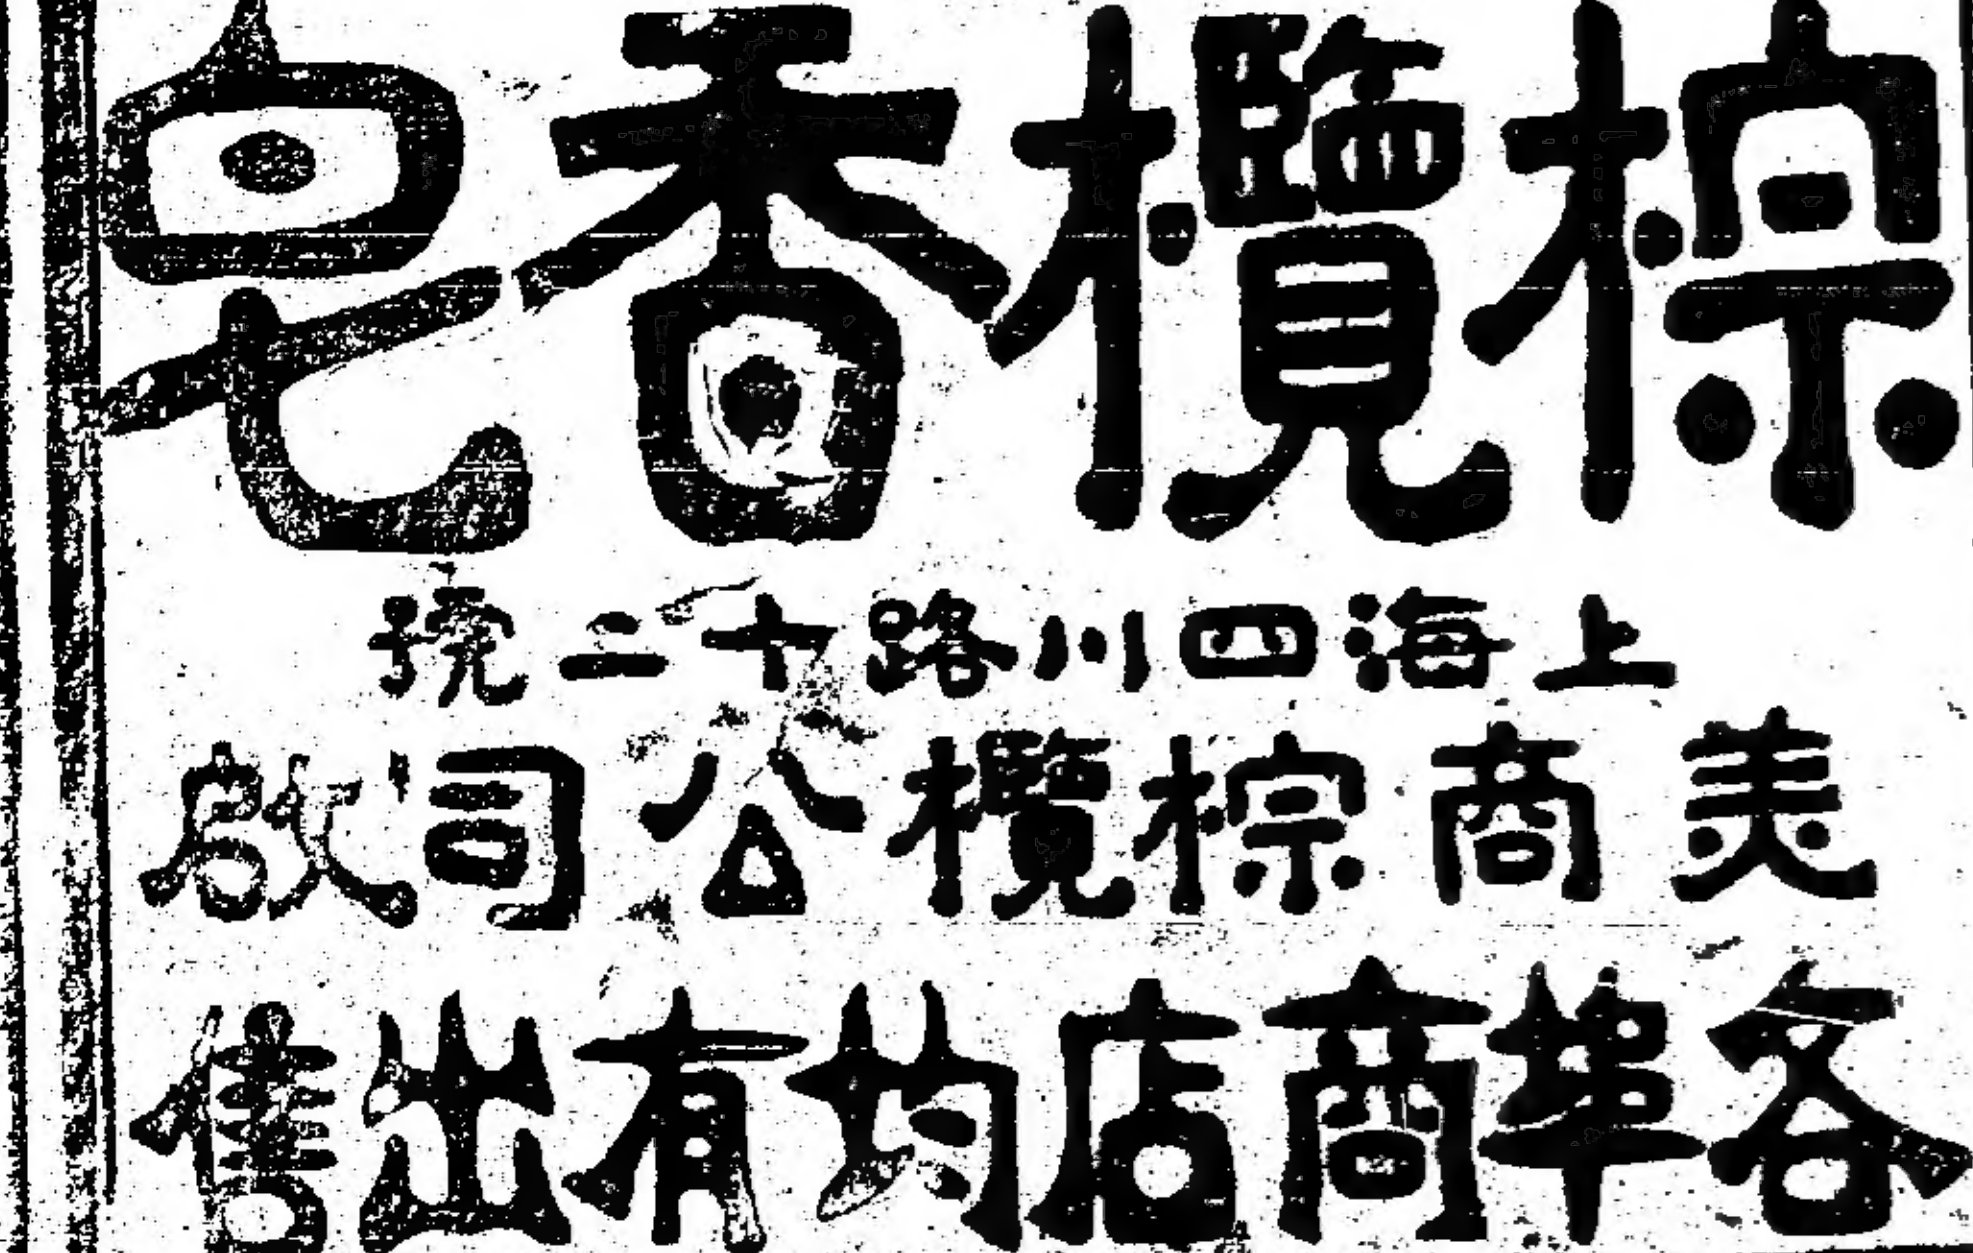 棕欖香皂
上海四川路十二號
美商棕欖公司啟
各埠商店均有出售